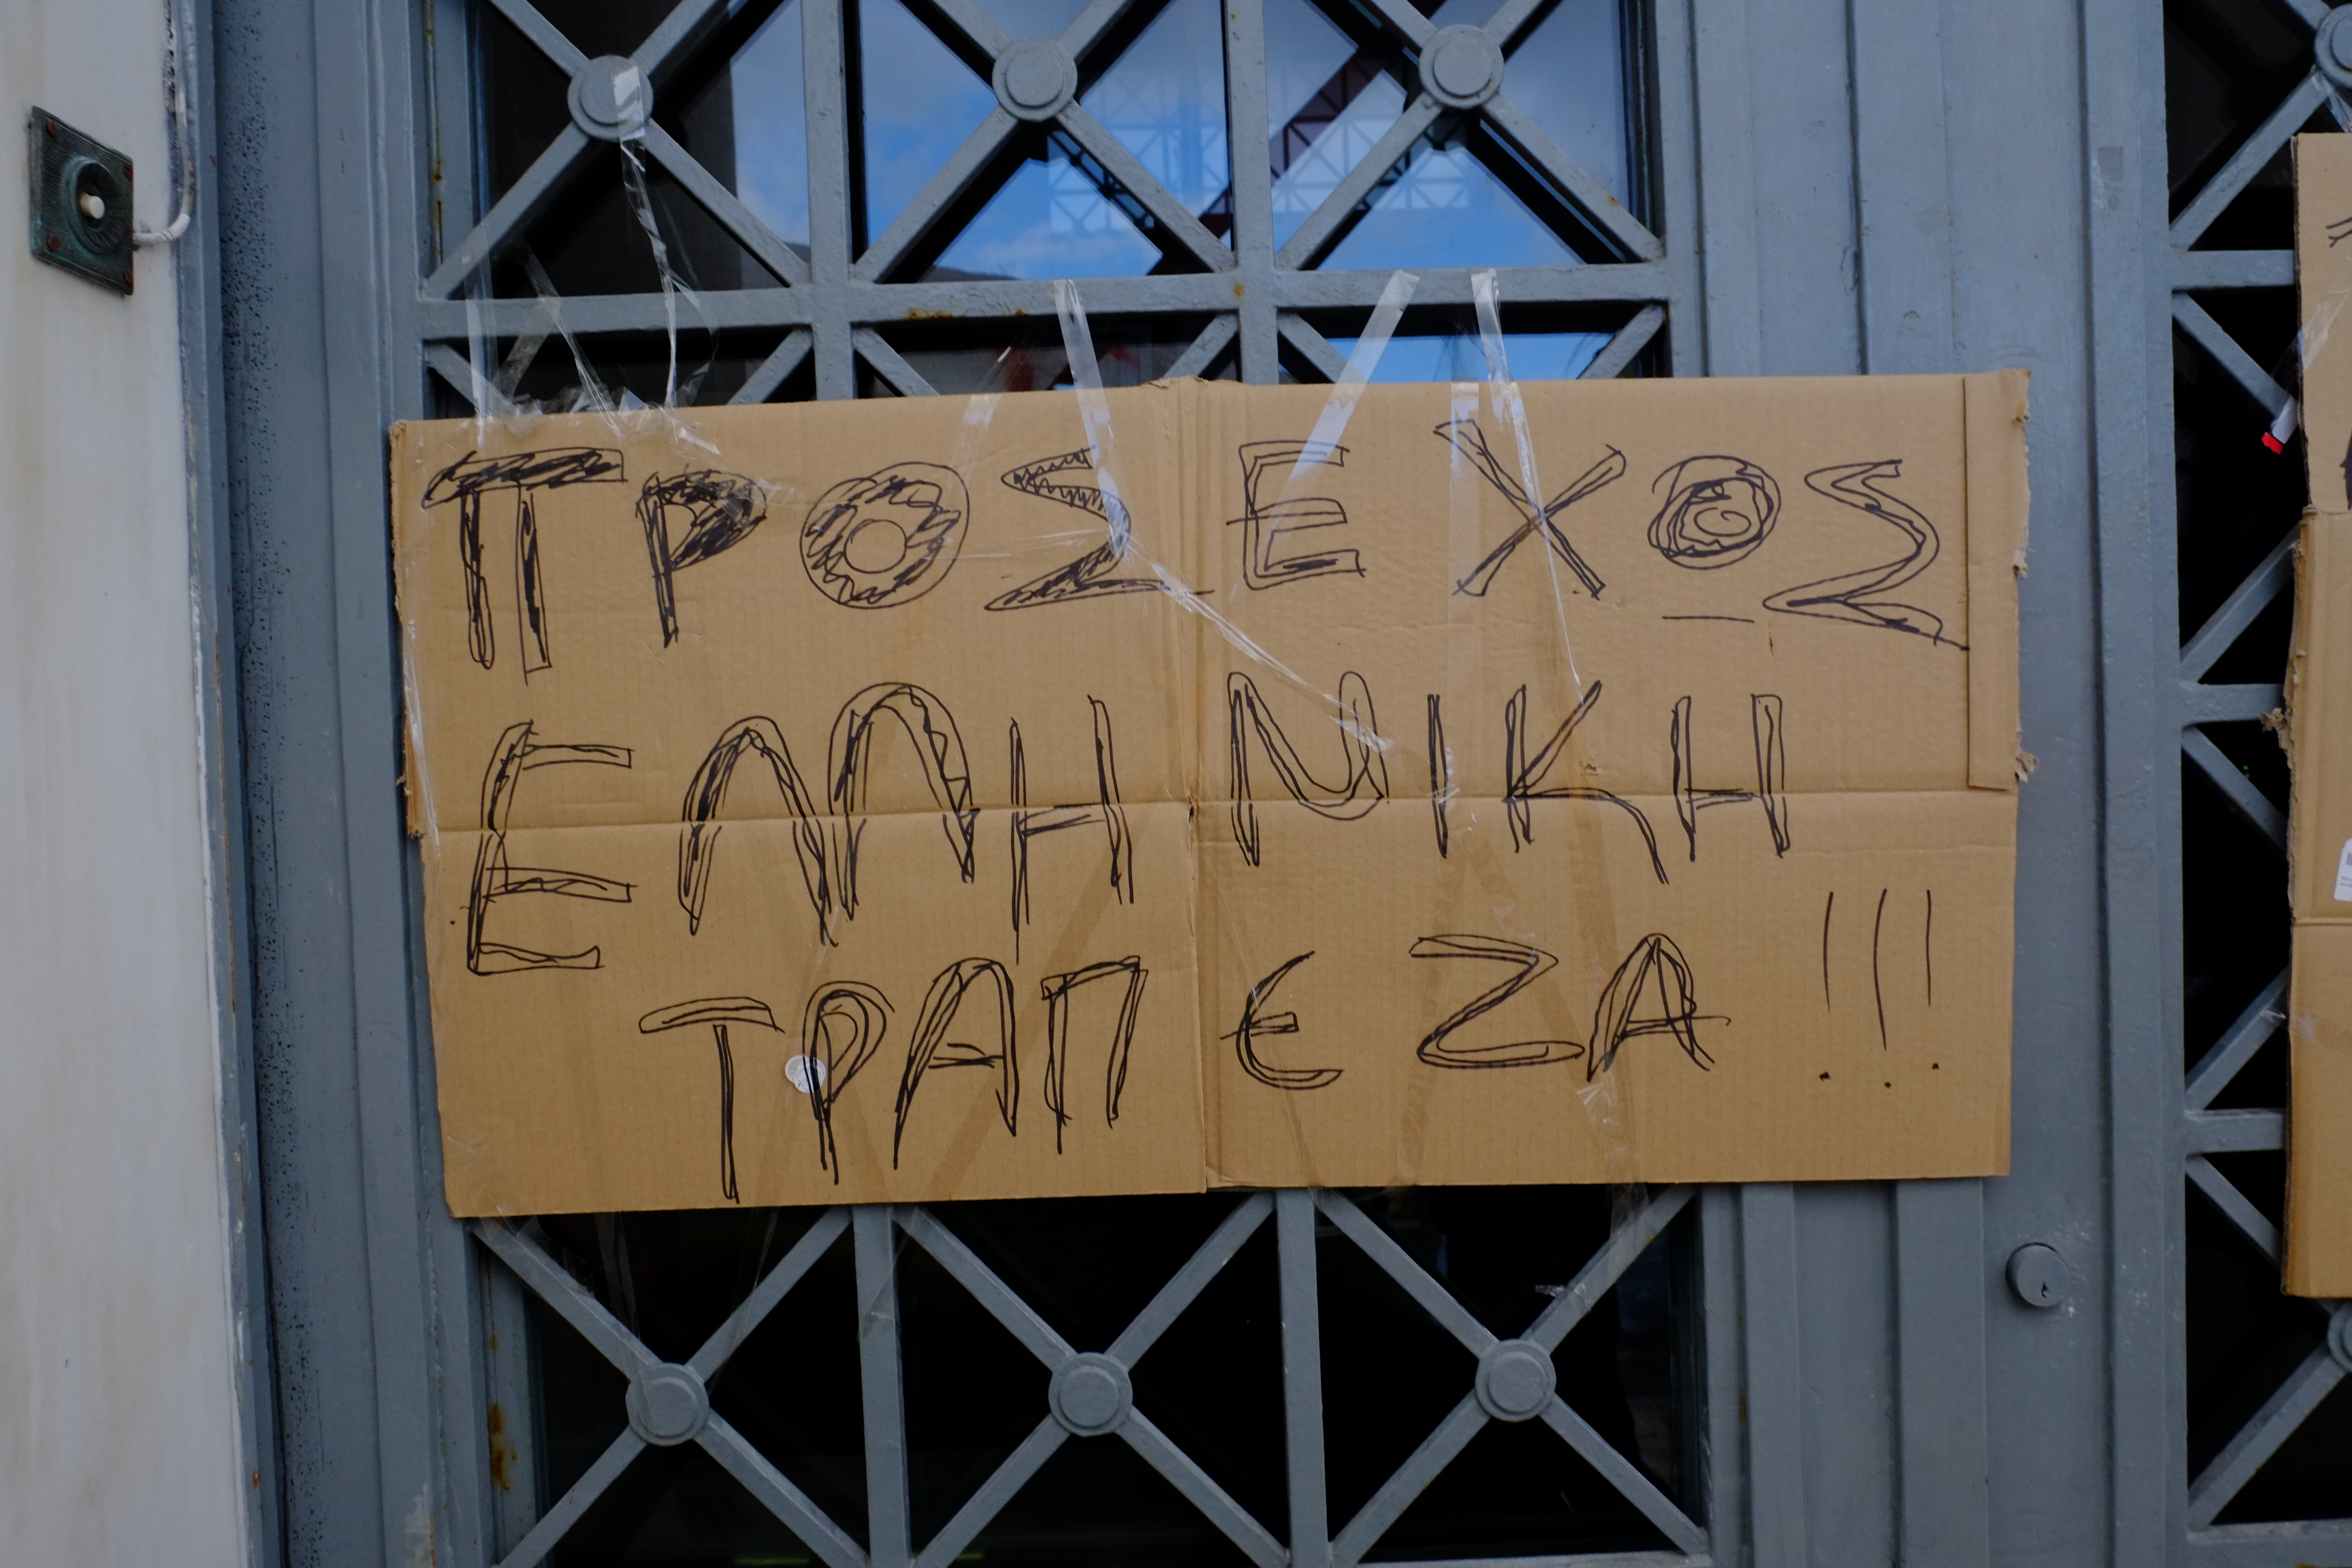 ΠΡΟΣΕΧΟΣ
ΕΛΛΗΝΙΚΗ
ΤΡΑΠΕΖΑ!!!